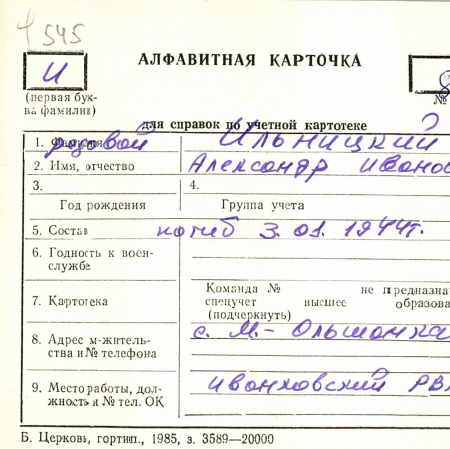 9 545
АЛФАВИТНАЯ КАРТОЧКА
И
(первая бук-
ва фамилии)
№
для справок по учетной картотеке
1. Фамилия рядовой Ильницкий
2. Имя, отчество Александр Иванов
3.
4.
Год рождения
Группа учета
5. Состав погиб 3.01.1944г.
6. Годность к воен-
службе
7. Картотека
Команда № не предназна
спецучет высшее образова
(подчеркнуть)
8. Адрес м-житель-
ства и № телефона
с. М.-Ольшанка
9. Место работы, дол-
жность и № тел. ОК
Иванковский РВ
Б. Церковь, гортип., 1985, з. 3589—20000